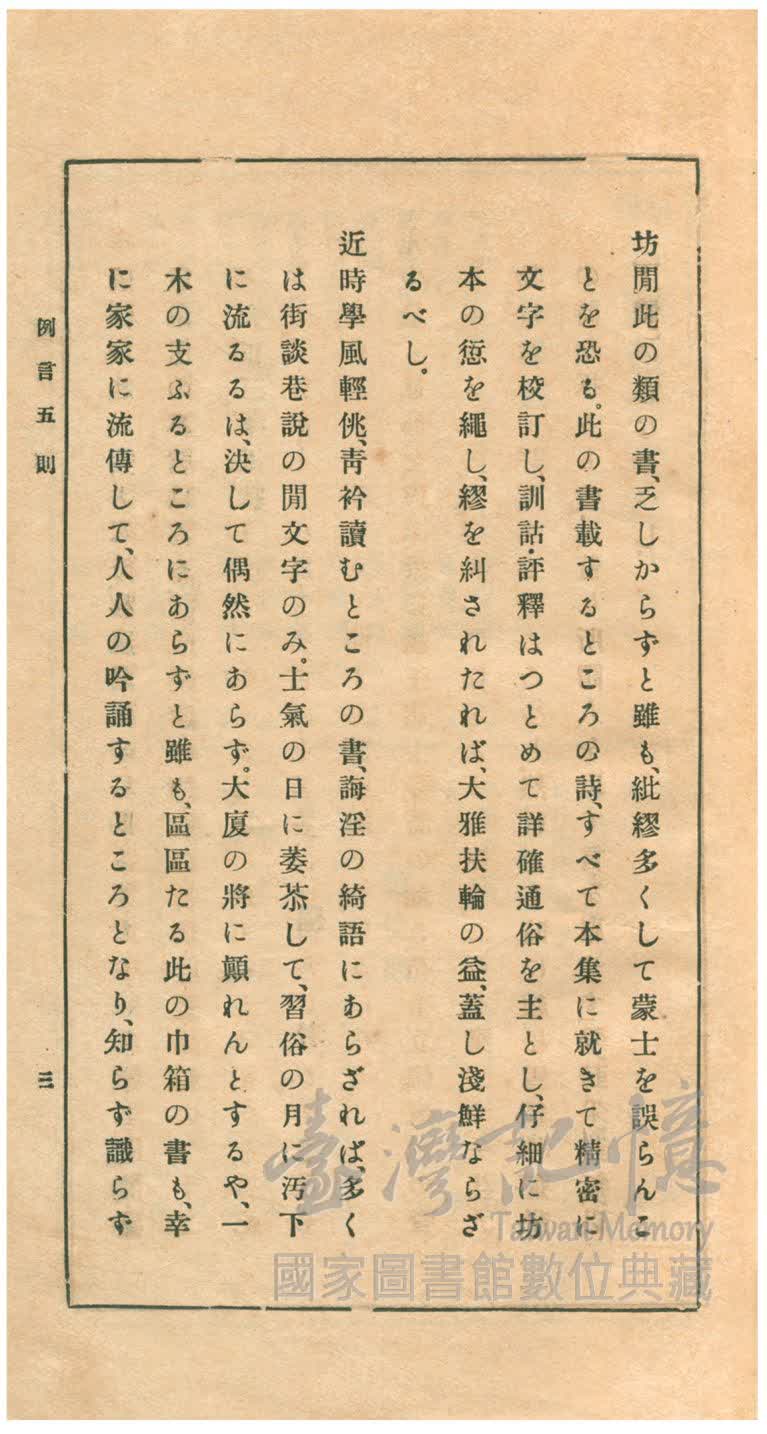 坊閒此の類の書、乏しからずと雖も、紕繆多くして蒙士を誤らんこ
とを恐る。此の書載するところの詩、すべて本集に就きて精密に
文字を校訂し、訓詁・評釋はつとめて詳確通俗を主とし、仔細に坊
本の愆を繩し、繆を糾されたれば、大雅扶輪の益、蓋し淺鮮ならざ
るべし。
近時學風輕佻、靑衿讀むところの書、誨淫の綺語にあらざれば、多く
は街談巷說の閒文字のみ。士氣の日に萎苶して、習俗の月に汚下
に流るるは、決して偶然にあらず。大廈の將に顚れんとするや、一
木の支ふるところにあらずと雖も、區區たる此の巾箱の書も、幸
に家家に流傳して、人人の吟誦するところとなり、知らず識らず
例言五則
三
臺灣記憶
Taiwan Memory
國家圖書館數位典藏